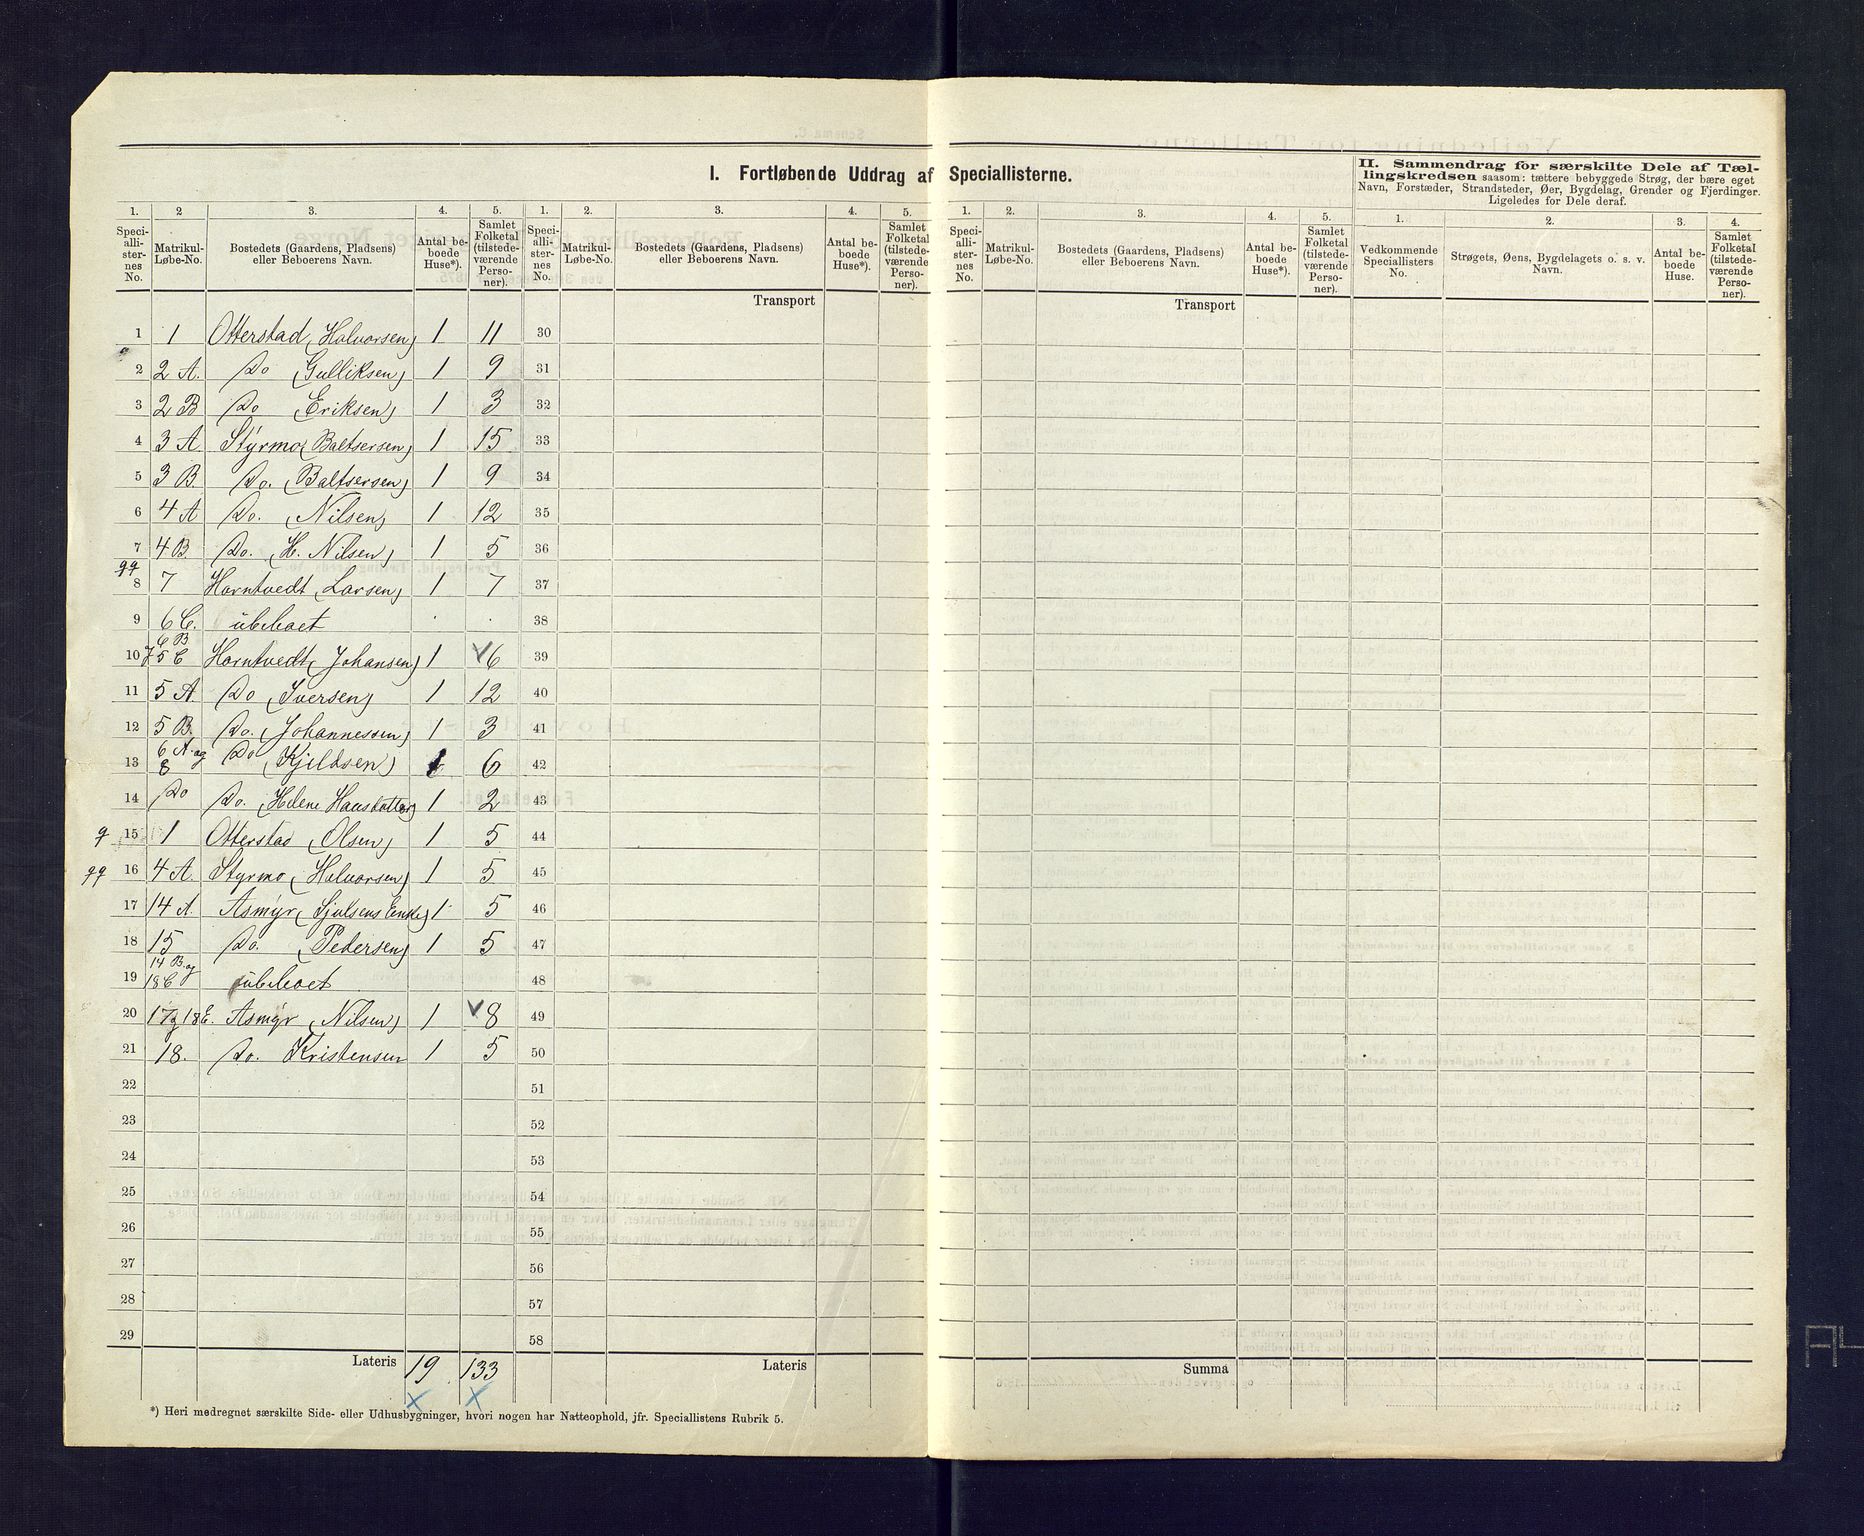 I. Fortløbende Uddrag af Speciallisterne.
II. Sammendrag for særskilte Dele af Tæl-
lingskredsen saasom: tættere bebyggede Strøg, der bære eget
Navn, Forstæder, Strandsteder, Øer, Bygdelag, Grender og Fjerdinger.
Ligeledes for Dele deraf.
1. 2 3. 4. 5. 1. 2. 3. 4. 5. 1. 2. 3. 4. 5. 1. 2. 3. 4.
Speciallisternes No. Matrikul-Løbe-No. Bostedets (Gaardens, Pladsens) eller Beboerens Navn. Antal beboede Huse*). Samlet Folketal (tilstedeværende Personer).
Speciallisternes No. Matrikul-Løbe-No. Bostedets (Gaardens, Pladsens) eller Beboerens Navn. Antal beboede Huse*). Samlet Folketal (tilstedeværende Personer).
Speciallisternes No. Matrikul-Løbe-No. Bostedets (Gaardens, Pladsens) eller Beboerens Navn. Antal beboede Huse*). Samlet Folketal (tilstedeværende Personer).
Vedkommende Speciallisters No. Strøgets, Øens, Bygdelagets o. s. v. Navn. Antal beboede Huse. Samlet Folketal (tilstedeværende Personer).
Transport Transport
1 1 Otterstad (Halvorsen) 1 11 30
2 2 A. Do (Gulliksen) 1 9 31
3 2 B Do (Eriksen) 1 3 32
4 3 A Styrmo (Baltsersen) 1 15 33
5 3 B. Do. (Baltsersen) 1 9 34
6 4 A Do. (Nilsen) 1 12 35
7 4 B. Do. (H. Nilsen) 1 5 36
8 7 Horntvedt (Larsen) 1 7 37
9 6 C. ubeboet . . 38
10 6 B 5 C Horntvedt (Johansen) 1 6 39
11 5 A. Do (Iversen) 1 12 40
12 5 B. Do. (Johannessen) 1 3 41
13 6 A. og 8 Do (Kjeldsen) 1 6 42
14 Do Do. (Helene Hansdatter) 1 2 43
15 1 Otterstad (Olsen) 1 5 44
16 4 A. Styrmo (Halvorsen) 1 5 45
17 14 A. Asmyr (Sjulsens Enke) 1 5 46
18 15 Do. (Pedersen) 1 5 47
19 14 B. og 18 C ubeboet 48
20 17 og 18 E. Asmyr (Nilsen) 1 8 49
21 18. Do. Kristensen 1 5 50
22 51
23 52
24 53
25 54
26 55
27 56
28 57
29 58
Lateris 19 133 Lateris Summa
*) Heri medregnet særskilte Side- eller Udhusbygninger, hvori nogen har Natteophold, jfr. Speciallistens Rubrik 5.